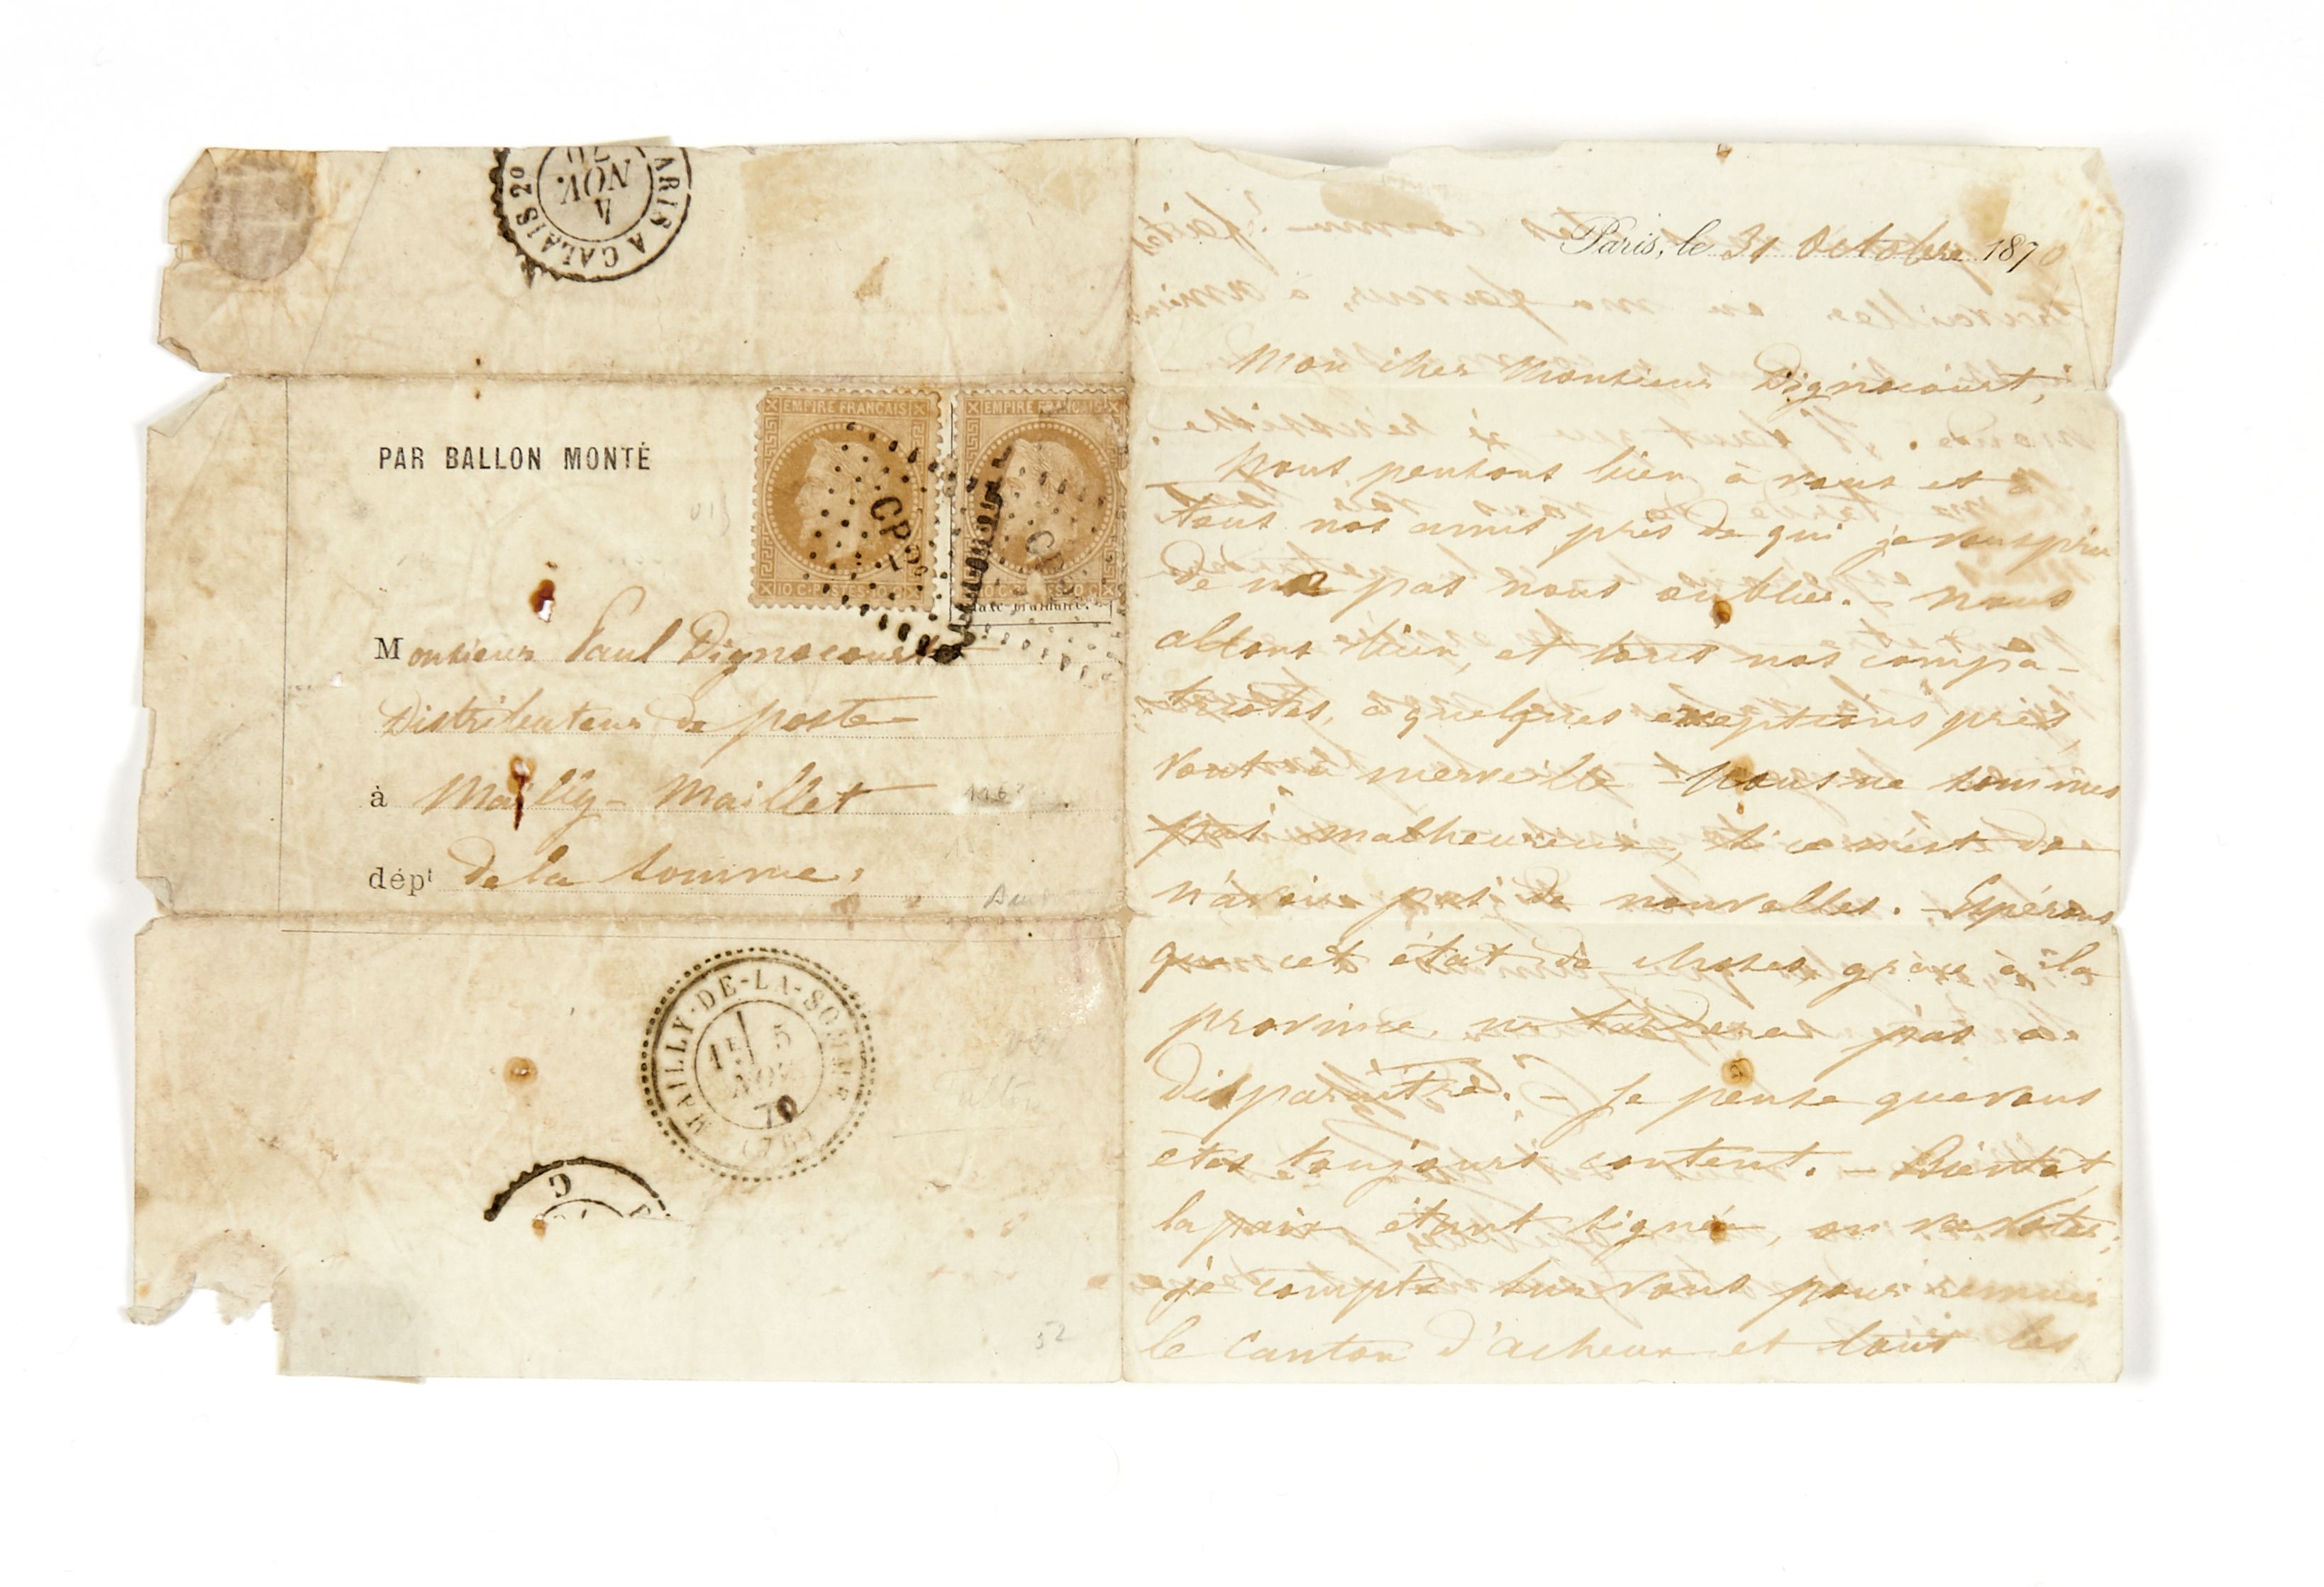 PARIS A CALAIS 2º
4
NOV.
70
PAR BALLON MONTÉ
EMPIRE FRANCAIS
EMPIRE FRANCAIS
10 C. POSTES 10 C
Monsieur Paul Dignocourt
Distributeur de poste
à Mailly-Maillet
dépt de la Somme.
MAILLY-DE-LA-SOMME
5
NOV
70
52
Paris, le 31 Octobre 1870
Mon cher Monsieur Dignocourt,
Nous pensons bien à vous et à
tous nos amis près de qui je vous prie
de ne pas nous oublier. – Nous
allons bien, et tous nos compa-
triotes, à quelques exceptions près,
vont à merveille – Nous ne sommes
pas malheureux, si ce n'est de
n'avoir pas de nouvelles. – Espérons
que cet état de choses grâce à la
province, ne tardera pas à
disparaître. – Je pense que vous
êtes toujours content. – Bientôt,
la paix étant signée, on va voter;
je compte sur vous pour remuer
le canton d'acheux et tous les